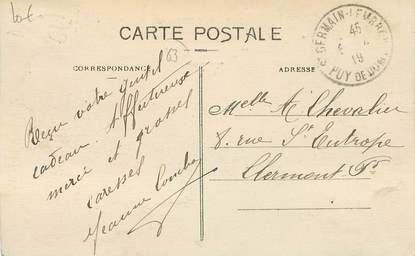 CARTE POSTALE
63
CORRESPONDANCE
ADRESSE
Reçu votre gentil
cadeau. Affectueuse
merci et grosses
caresses
Jeanne
Melle A. Chevalier
8. rue St Eutrope
Clermont Fd
ST GERMAIN-LEMBRON
45
19
PUY DE DOME